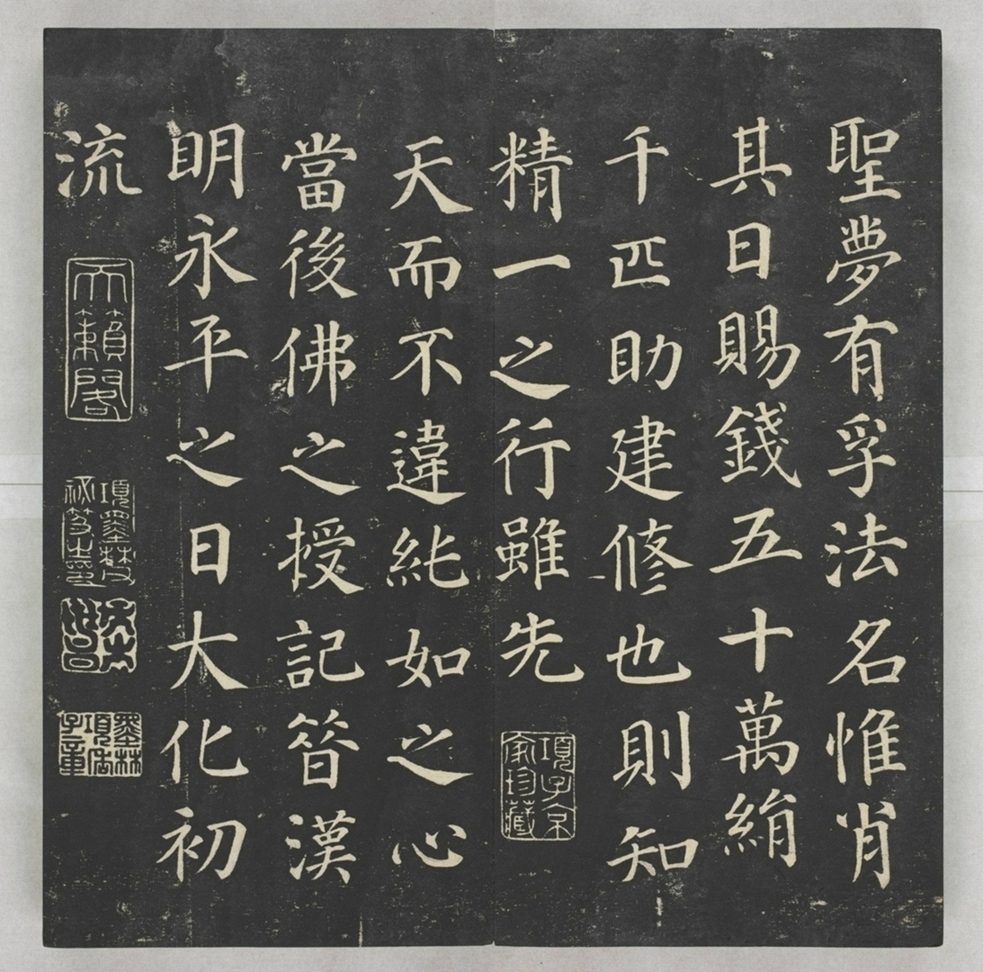 聖夢有孚法名惟肖
其日賜錢五十萬絹
千匹助建修也則知
精一之行雖先
項子京家珍藏
天而不違純如之心
當後佛之授記昔漢
明永平之日大化初
流
天籟閣
項墨林父祕笈之印